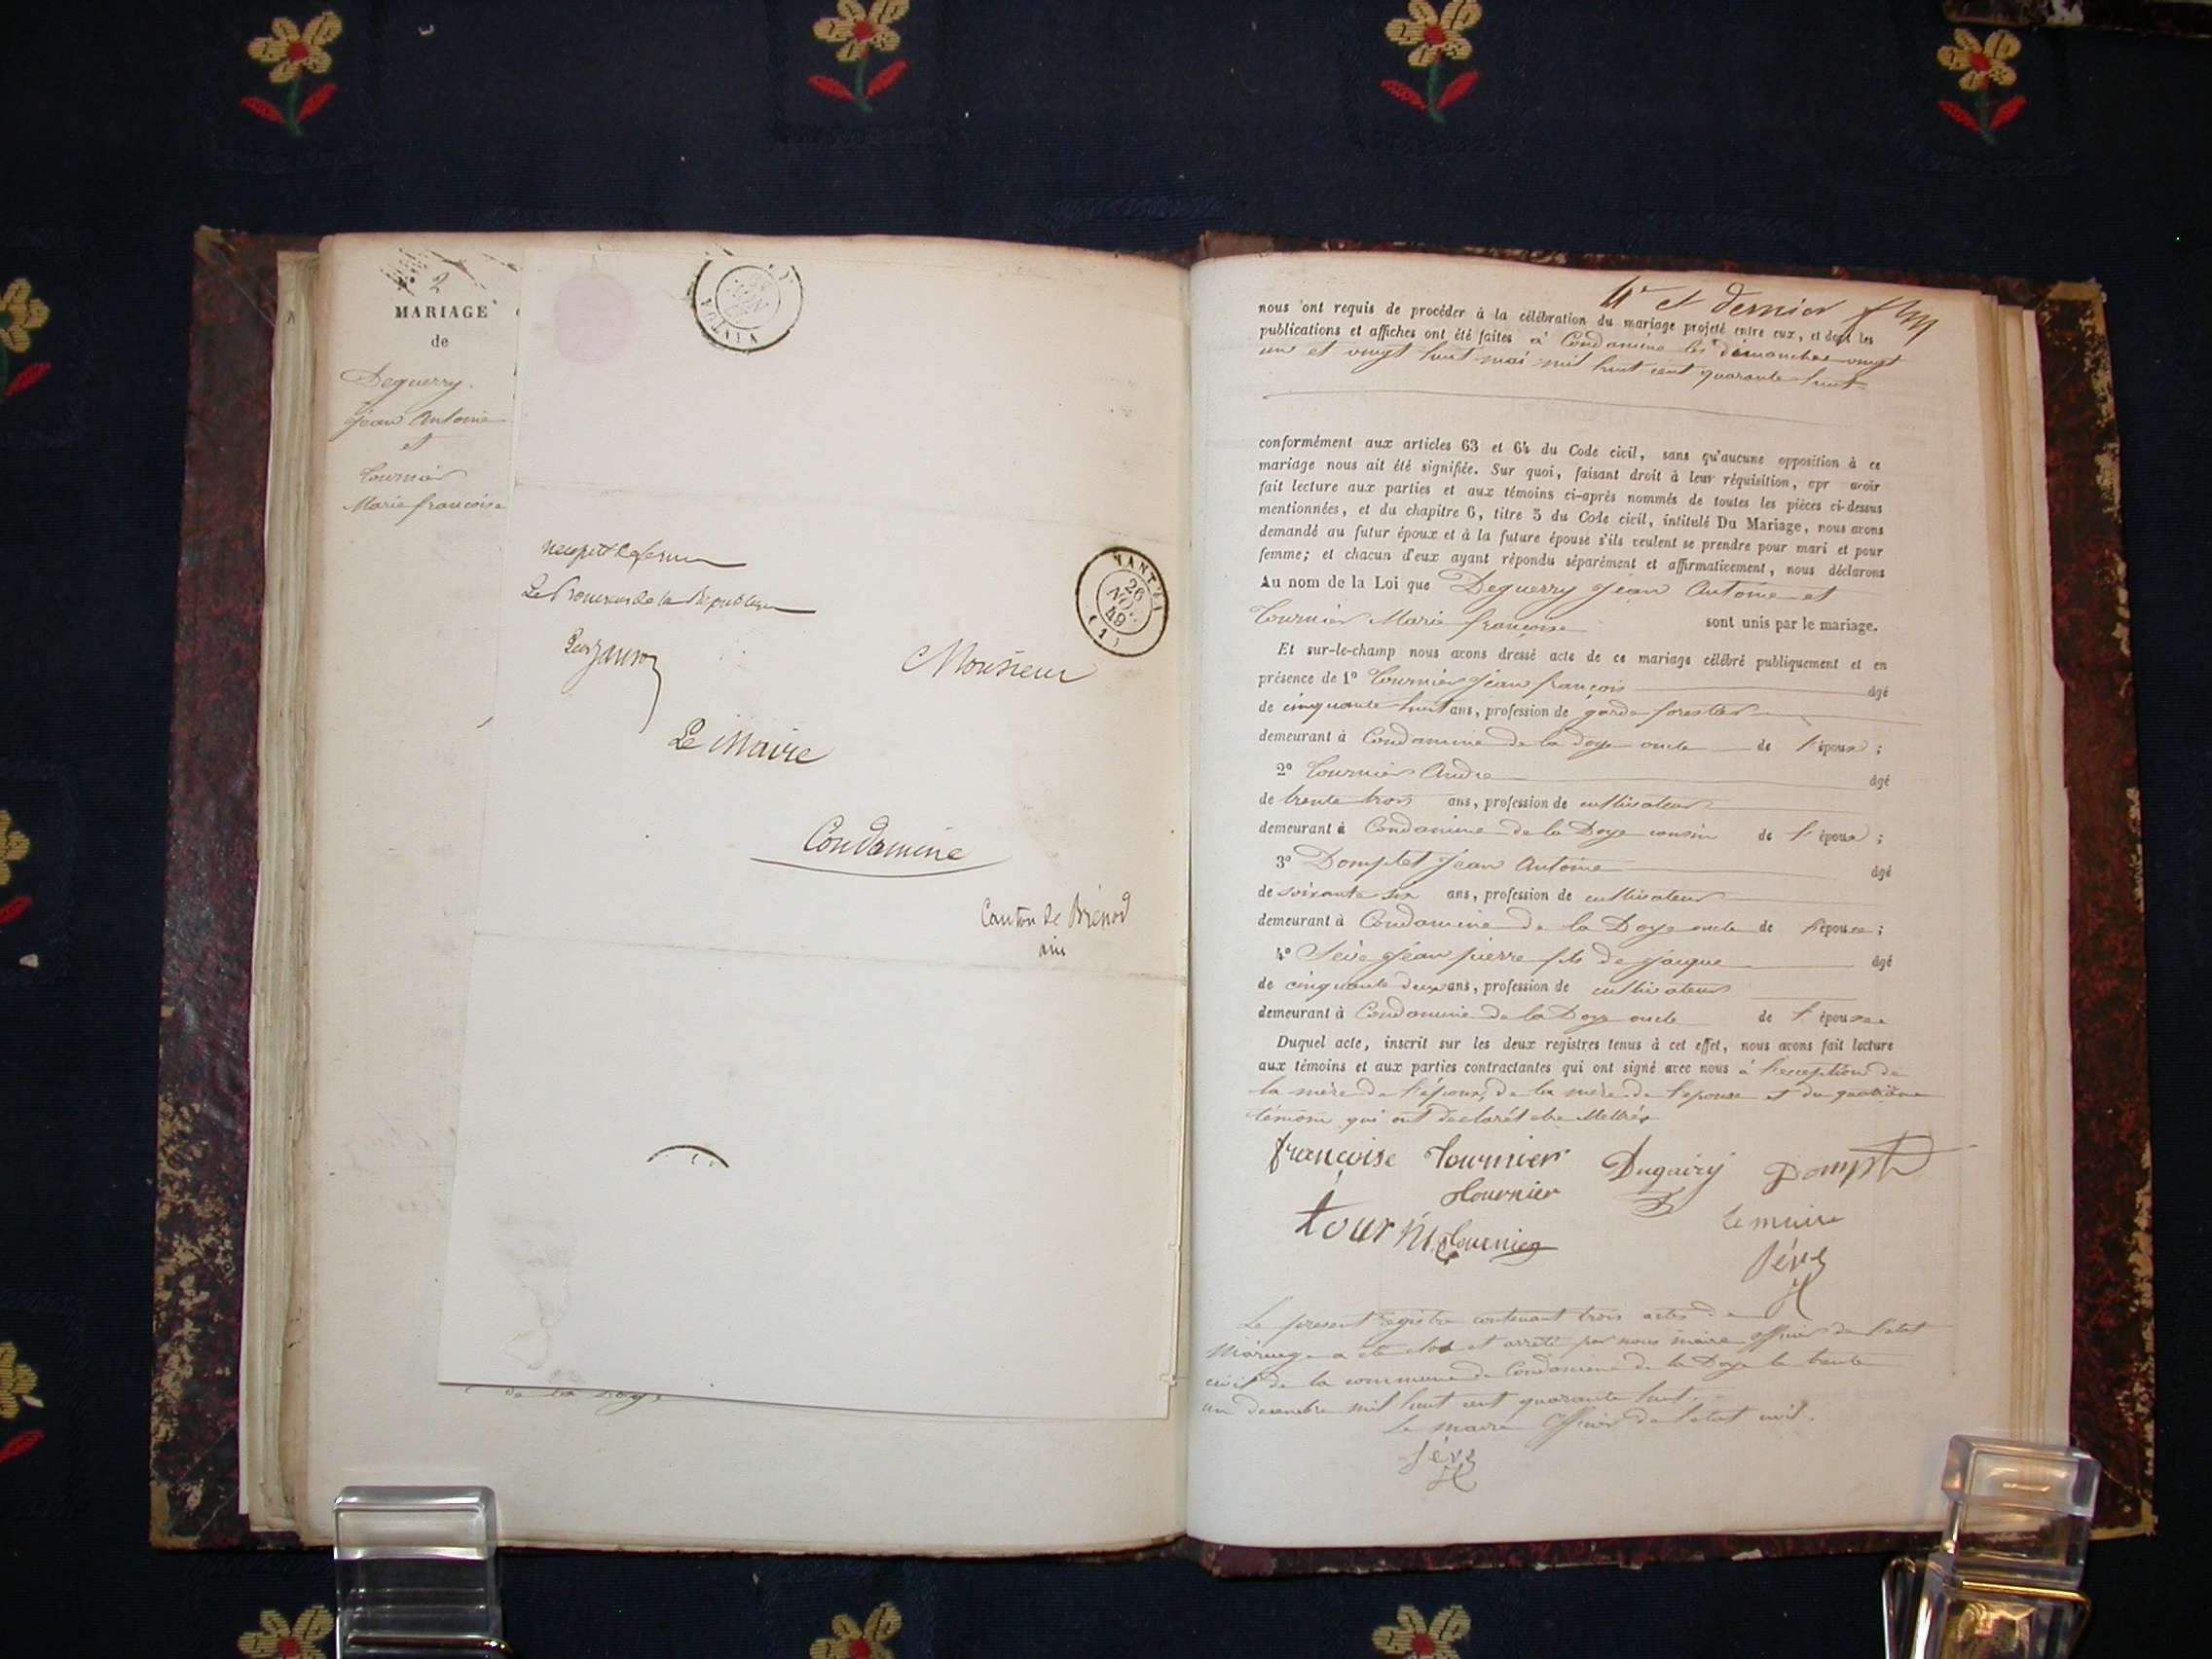 2
MARIAGE
de
Deguerry
Jean Antoine
et
Tournier
Marie françoise
NANTUA
NANTUA
26
NOV.
49
(1)
Le Procureur de la République
Monsieur
Le Maire
Condamine
Canton de Brénod
ain
de la Doye
4e et dernier
nous ont requis de procéder à la célébration du mariage projeté entre eux, et dont les
publications et affiches ont été faites à Condamine les dimanches vingt
un et vingt huit mai mil huit cent quarante huit
conformément aux articles 63 et 64 du Code civil, sans qu'aucune opposition à ce
mariage nous ait été signifiée. Sur quoi, faisant droit à leur réquisition, apr avoir
fait lecture aux parties et aux témoins ci-après nommés de toutes les pièces ci-dessus
mentionnées, et du chapitre 6, titre 5 du Code civil, intitulé Du Mariage, nous avons
demandé au futur époux et à la future épouse s'ils veulent se prendre pour mari et pour
femme; et chacun d'eux ayant répondu séparément et affirmativement, nous déclarons
Au nom de la Loi que Deguerry Jean Antoine et
Tournier Marie françoise sont unis par le mariage.
Et sur-le-champ nous avons dressé acte de ce mariage célébré publiquement et en
présence de 1° Tournier Jean françois âgé
de cinquante huit ans, profession de garde forestier
demeurant à Condamine de la Doye oncle de l'époux;
2° Tournier Andre âgé
de trente trois ans, profession de cultivateur
demeurant à Condamine de la Doye cousin de l'époux;
3° Domptet Jean Antoine âgé
de soixante six ans, profession de cultivateur
demeurant à Condamine de la Doye oncle de l'épouse;
4° Sève Jean pierre fils de Jacque âgé
de cinquante deux ans, profession de cultivateur
demeurant à Condamine de la Doye oncle de l'épouse
Duquel acte, inscrit sur les deux registres tenus à cet effet, nous avons fait lecture
aux témoins et aux parties contractantes qui ont signé avec nous à l'exception de
la mère de l'époux, de la mère de l'épouse et du quatrième
témoin qui ont declaré
françoise Tournier Dugairy Dompt
Tournier
tournier Tournier le maire
Sève
Le present registre contenant trois actes de
Mariage a été clos et arrêté par nous maire officier de l'etat
civil de la commune de Condamine de la Doye le trente
un decembre mil huit cent quarante huit.
Le maire Officier de l'etat civil.
Sève